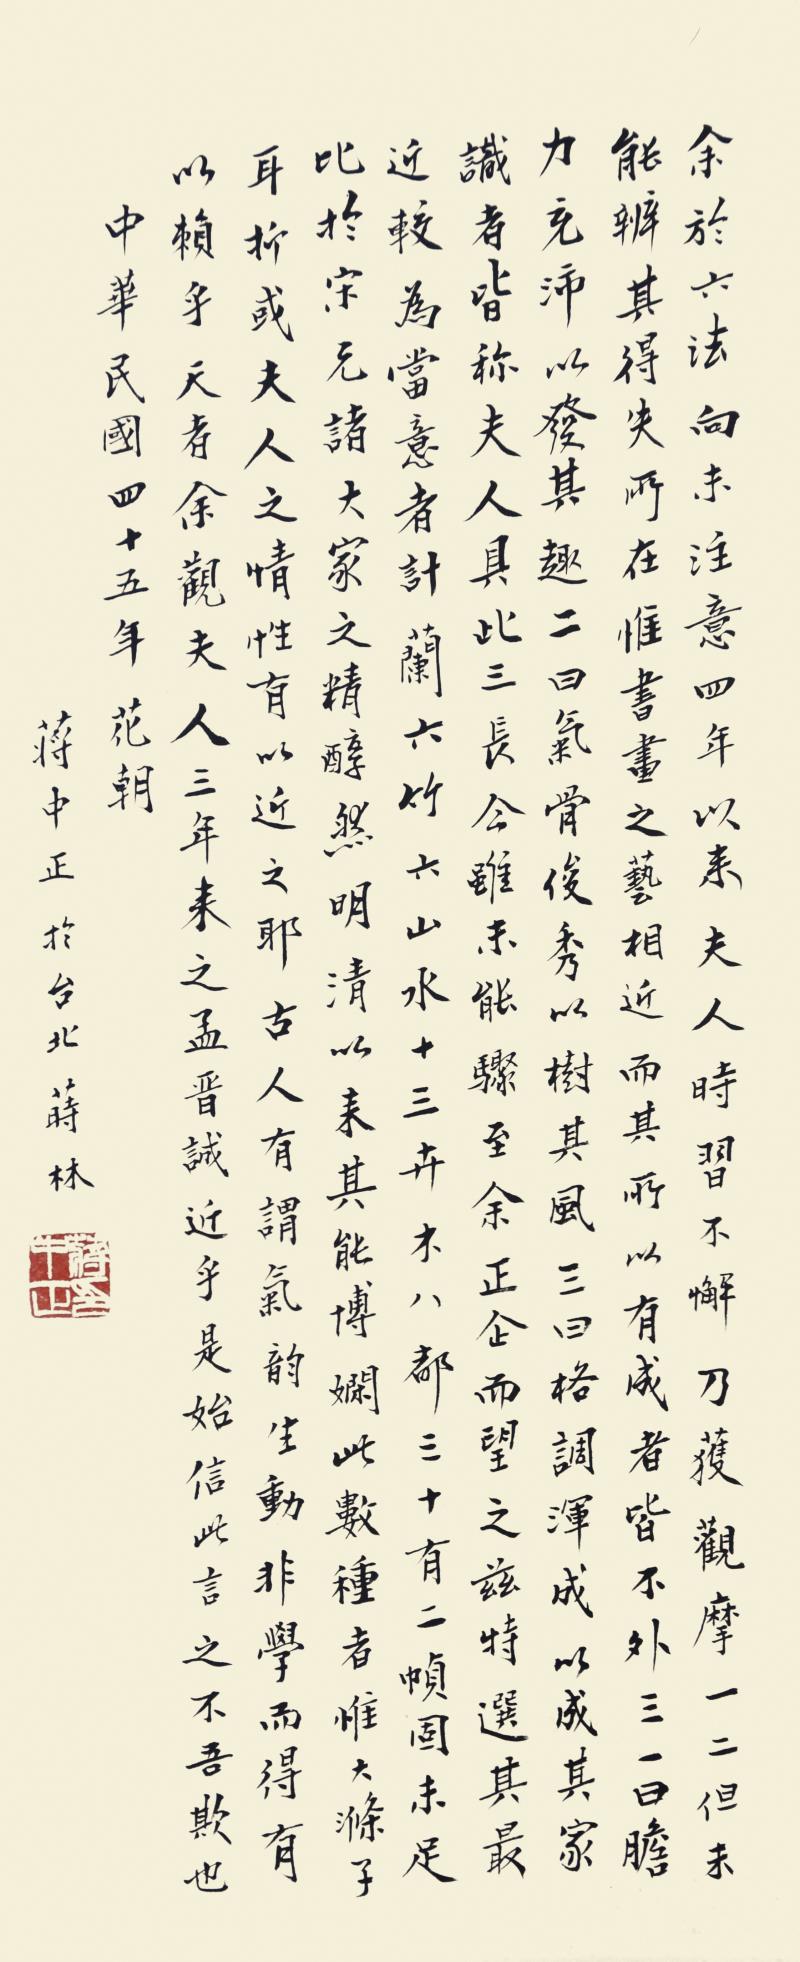 余於六法向未注意四年以来夫人時習不懈乃獲觀摩一二但未
能辨其得失所在惟書畫之藝相近而其所以有成者皆不外三一曰膽
力充沛以發其趣二曰氣骨俊秀以樹其風三曰格調渾成以成其家
識者皆称夫人具此三長今雖未能驟至余正企而望之茲特選其最
近較為當意者計蘭六竹六山水十三卉木八都三十有二幀固未足
比於宋元諸大家之精醇然明清以来其能博嫻此數種者惟大滌子
耳抑或夫人之情性有以近之耶古人有謂氣韵生動非學而得有
以賴乎天者余觀夫人三年来之孟晋誠近乎是始信此言之不吾欺也
中華民國四十五年花朝
蔣中正於台北蒔林
蔣中正印